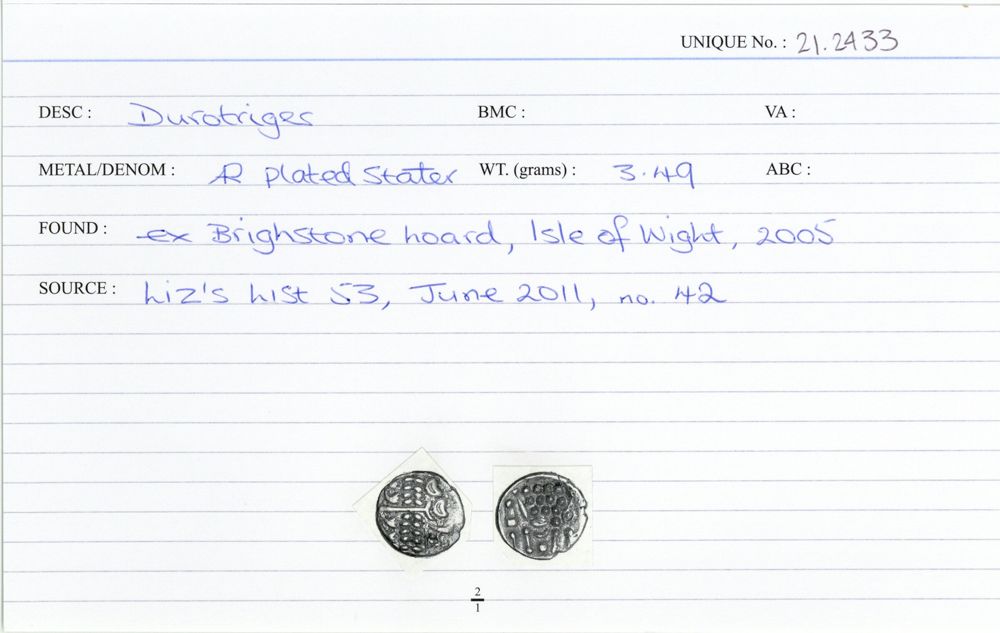 UNIQUE No. : 21.2433
DESC : Durotriges BMC : VA :
METAL/DENOM : AR plated Stater WT. (grams) : 3.49 ABC :
FOUND : ex Brighstone hoard, Isle of Wight, 2005
SOURCE : Liz's List 53, June 2011, no. 42
2
1